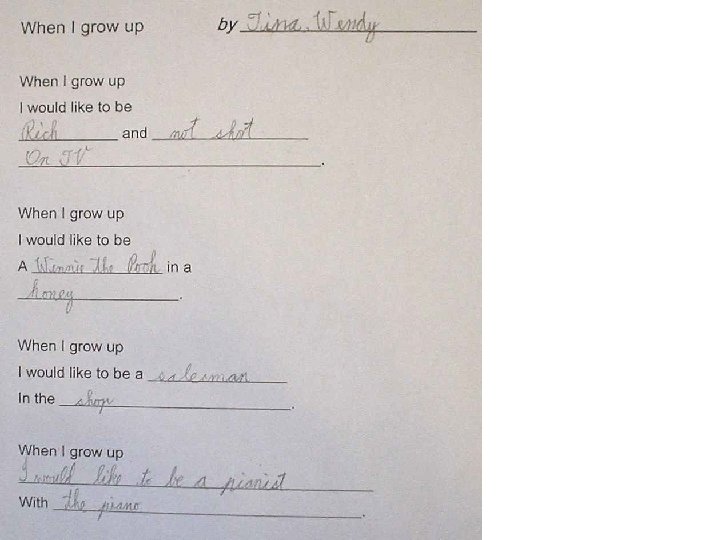 When I grow up by Tina. Wendy
When I grow up
I would like to be
Rich and not short
On TV.
When I grow up
I would like to be
A Winnie the Pooh in a
honey.
When I grow up
I would like to be a salesman
In the shop.
When I grow up
I would like to be a pianist
With the piano.